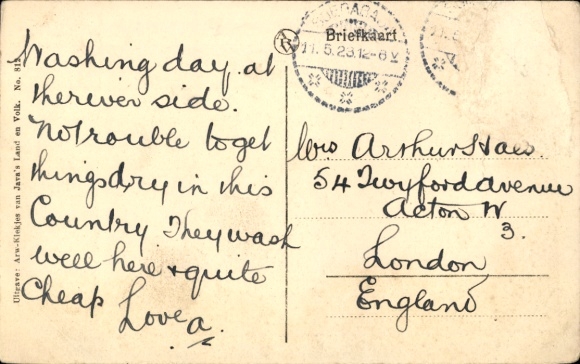 Washing day at
the river side.
No trouble to get
things dry in this
Country. They wash
well here & quite
cheap
Love a.
Briefkaart.
11.5.23.12-6 V
Mrs Arthur Haes.
54 Twyford avenue
Acton W
3.
London
England
Uitgave: Arw-Kiekjes van Java's Land en Volk. No.